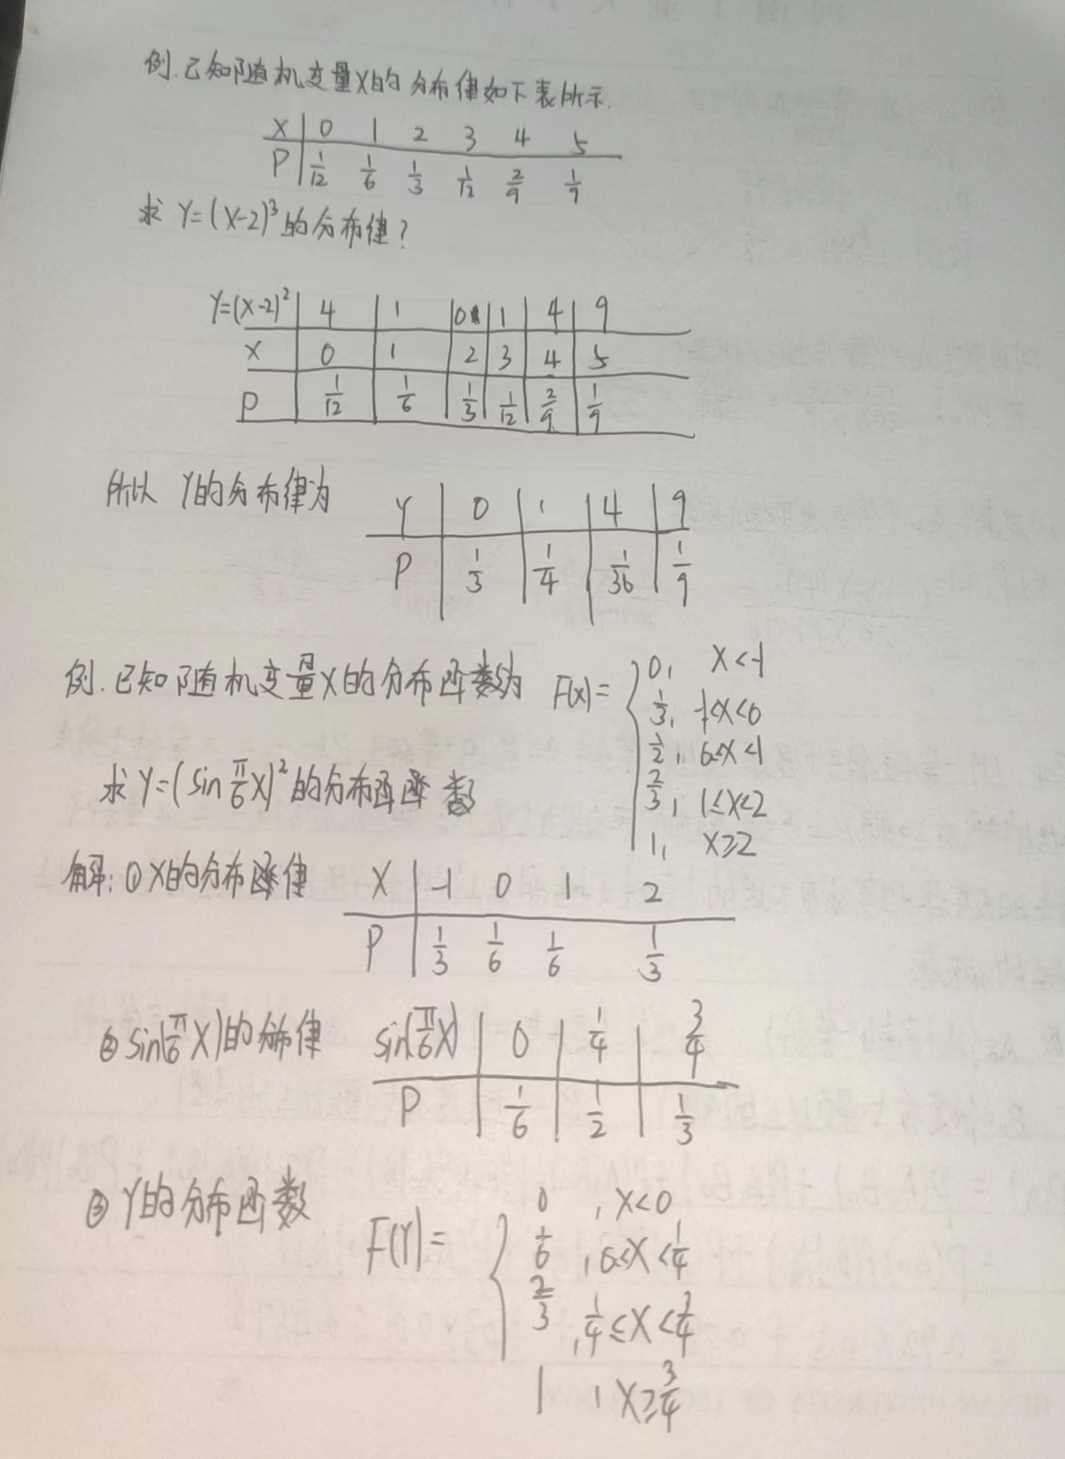 例.已知随机变量X的分布律如下表所示.
X 0 1 2 3 4 5
P 1/12 1/6 1/3 1/12 2/9 1/9
求 Y=(X-2)³的分布律?
Y=(X-2)² 4 1 0 1 4 9
X 0 1 2 3 4 5
P 1/12 1/6 1/3 1/12 2/9 1/9
所以 Y的分布律为
Y 0 1 4 9
P 1/3 1/4 1/36 1/9
例.已知随机变量X的分布函数为 F(x)=
0, X<-1
1/3, -1≤X<0
1/2, 0≤X<1
2/3, 1≤X<2
1, X≥2
求 Y=(sin π/6 X)²的分布函数
解:①X的分布律
X -1 0 1 2
P 1/3 1/6 1/6 1/3
②sin(π/6 X)的分布律
sin(π/6 X) 0 1/4 3/4
P 1/6 1/2 1/3
③Y的分布函数
F(Y)=
0, X<0
1/6, 0≤X<1/4
2/3, 1/4≤X<3/4
1, X≥3/4